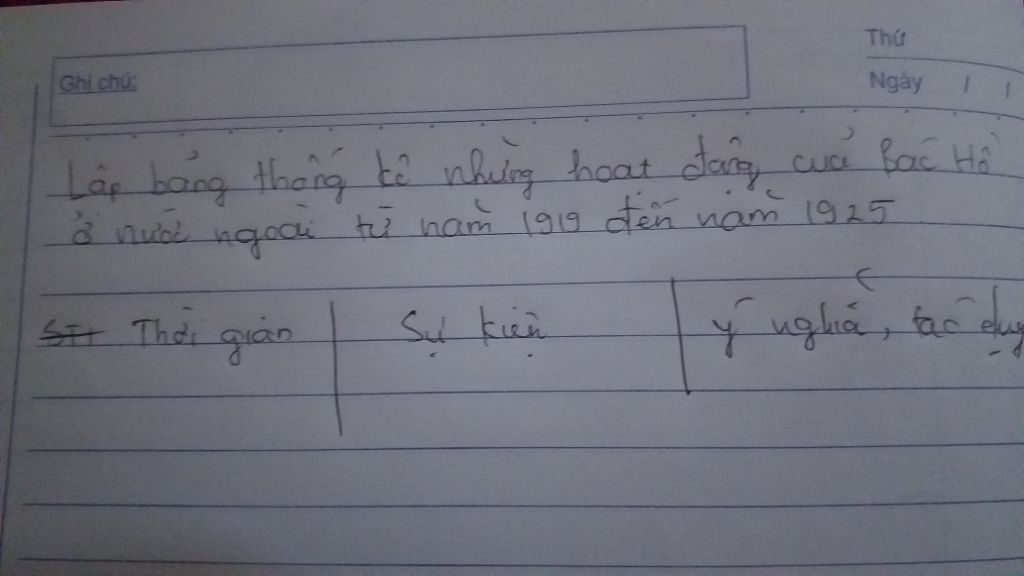 Thứ
Ghi chú:
Ngày / /
Lập bảng thống kê những hoạt động của Bác Hồ
ở nước ngoài từ năm 1919 đến năm 1925
STT Thời gian Sự kiện ý nghĩa, tác dụng